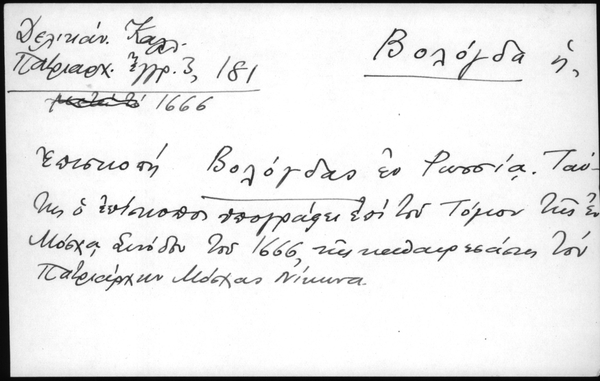 Δελικάν. Καλλ.
Πατριαρχ. Ἔγγρ. 3, 181
1666
Βολόγδα ἡ,
Ἐπισκοπή Βολόγδας ἐν Ρωσσίᾳ. Ταύ-
της ὁ ἐπίσκοπος ὑπογράφει ἐπί τοῦ Τόμου τῆς ἐν
Μόσχᾳ Συνόδου τοῦ 1666, τῆς καθαιρεσάσης τόν
Πατριάρχην Μόσχας Νίκωνα.